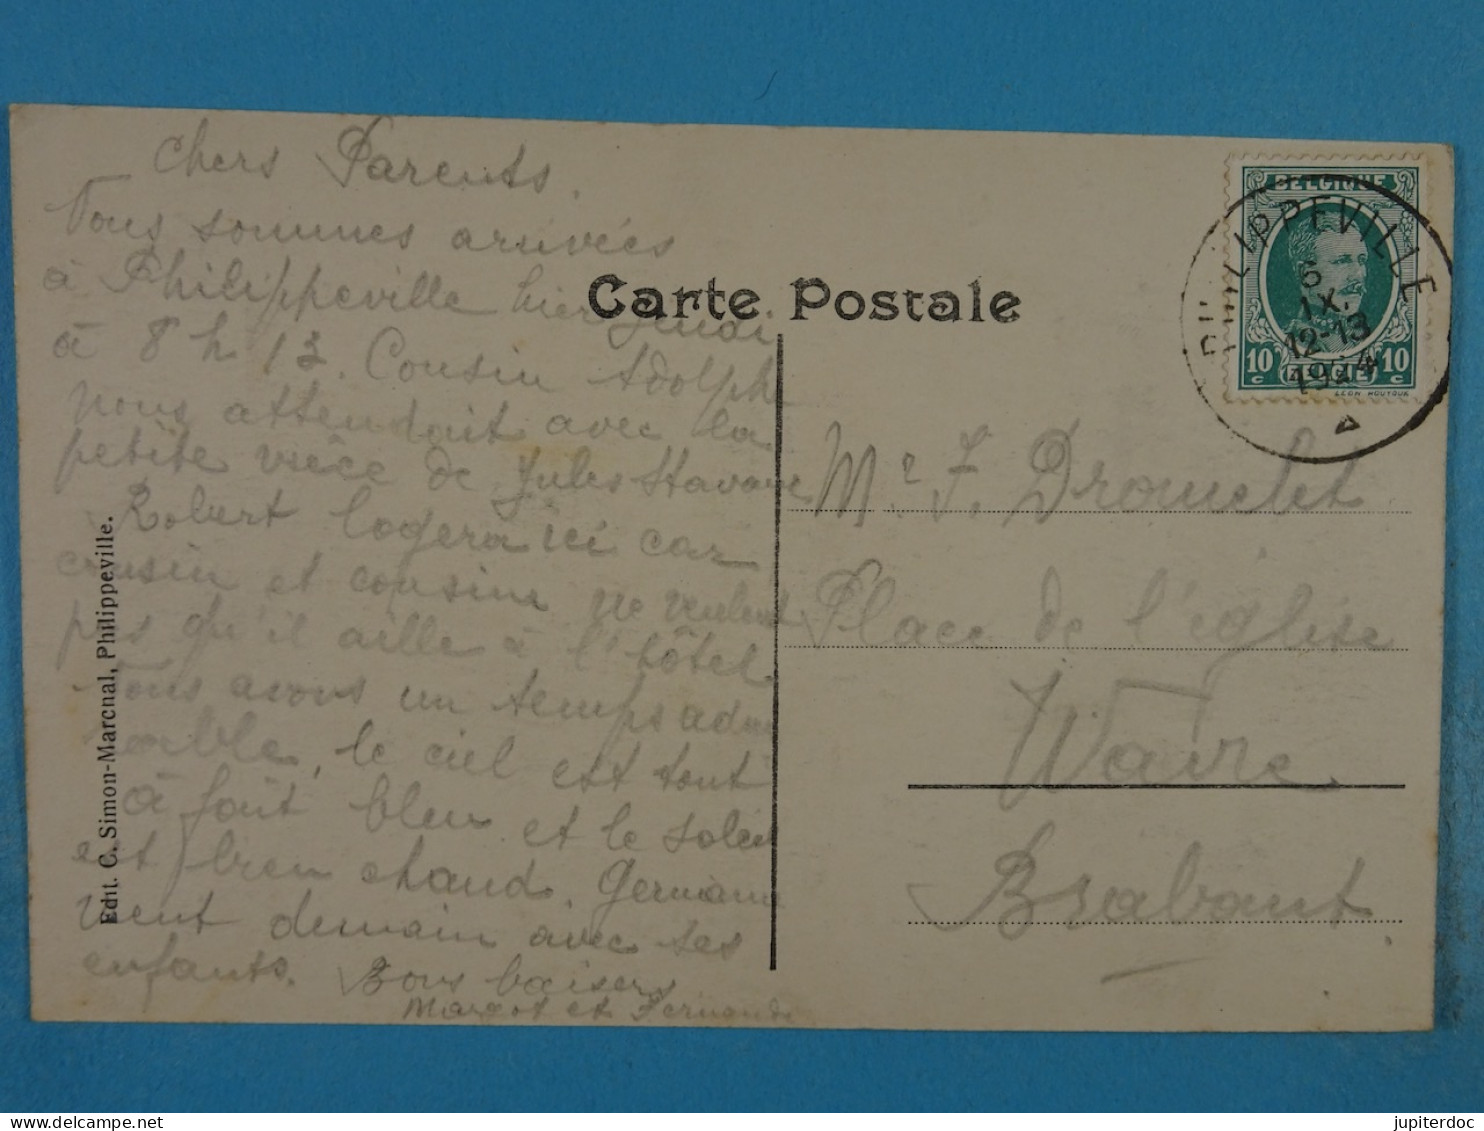 Chers Parents.
Nous sommes arrivées
à Philippeville hier jeudi
à 8 h 13. Cousin Adolphe
nous attendait avec la
petite nièce de Jules
Robert logera ici car
cousin et cousine ne veulent
pas qu'il aille à l'hôtel.
Nous avons un temps admi
rable, le ciel est tout
à fait bleu et le soleil
est bien chaud. Germaine
vient demain avec ses
enfants. Bons baisers
Margot et Fernande
Edit. C. Simon-Marchal, Philippeville.
Carte Postale
BELGIQUE
10 c
10 c
BELGIE
LEON HOUYOUX
PHILIPPEVILLE
6
IX.
12-13
1924
Mr. F. Dromelet
Place de l'église
Wavre
Brabant.
jupiterdoc
delcampe.net